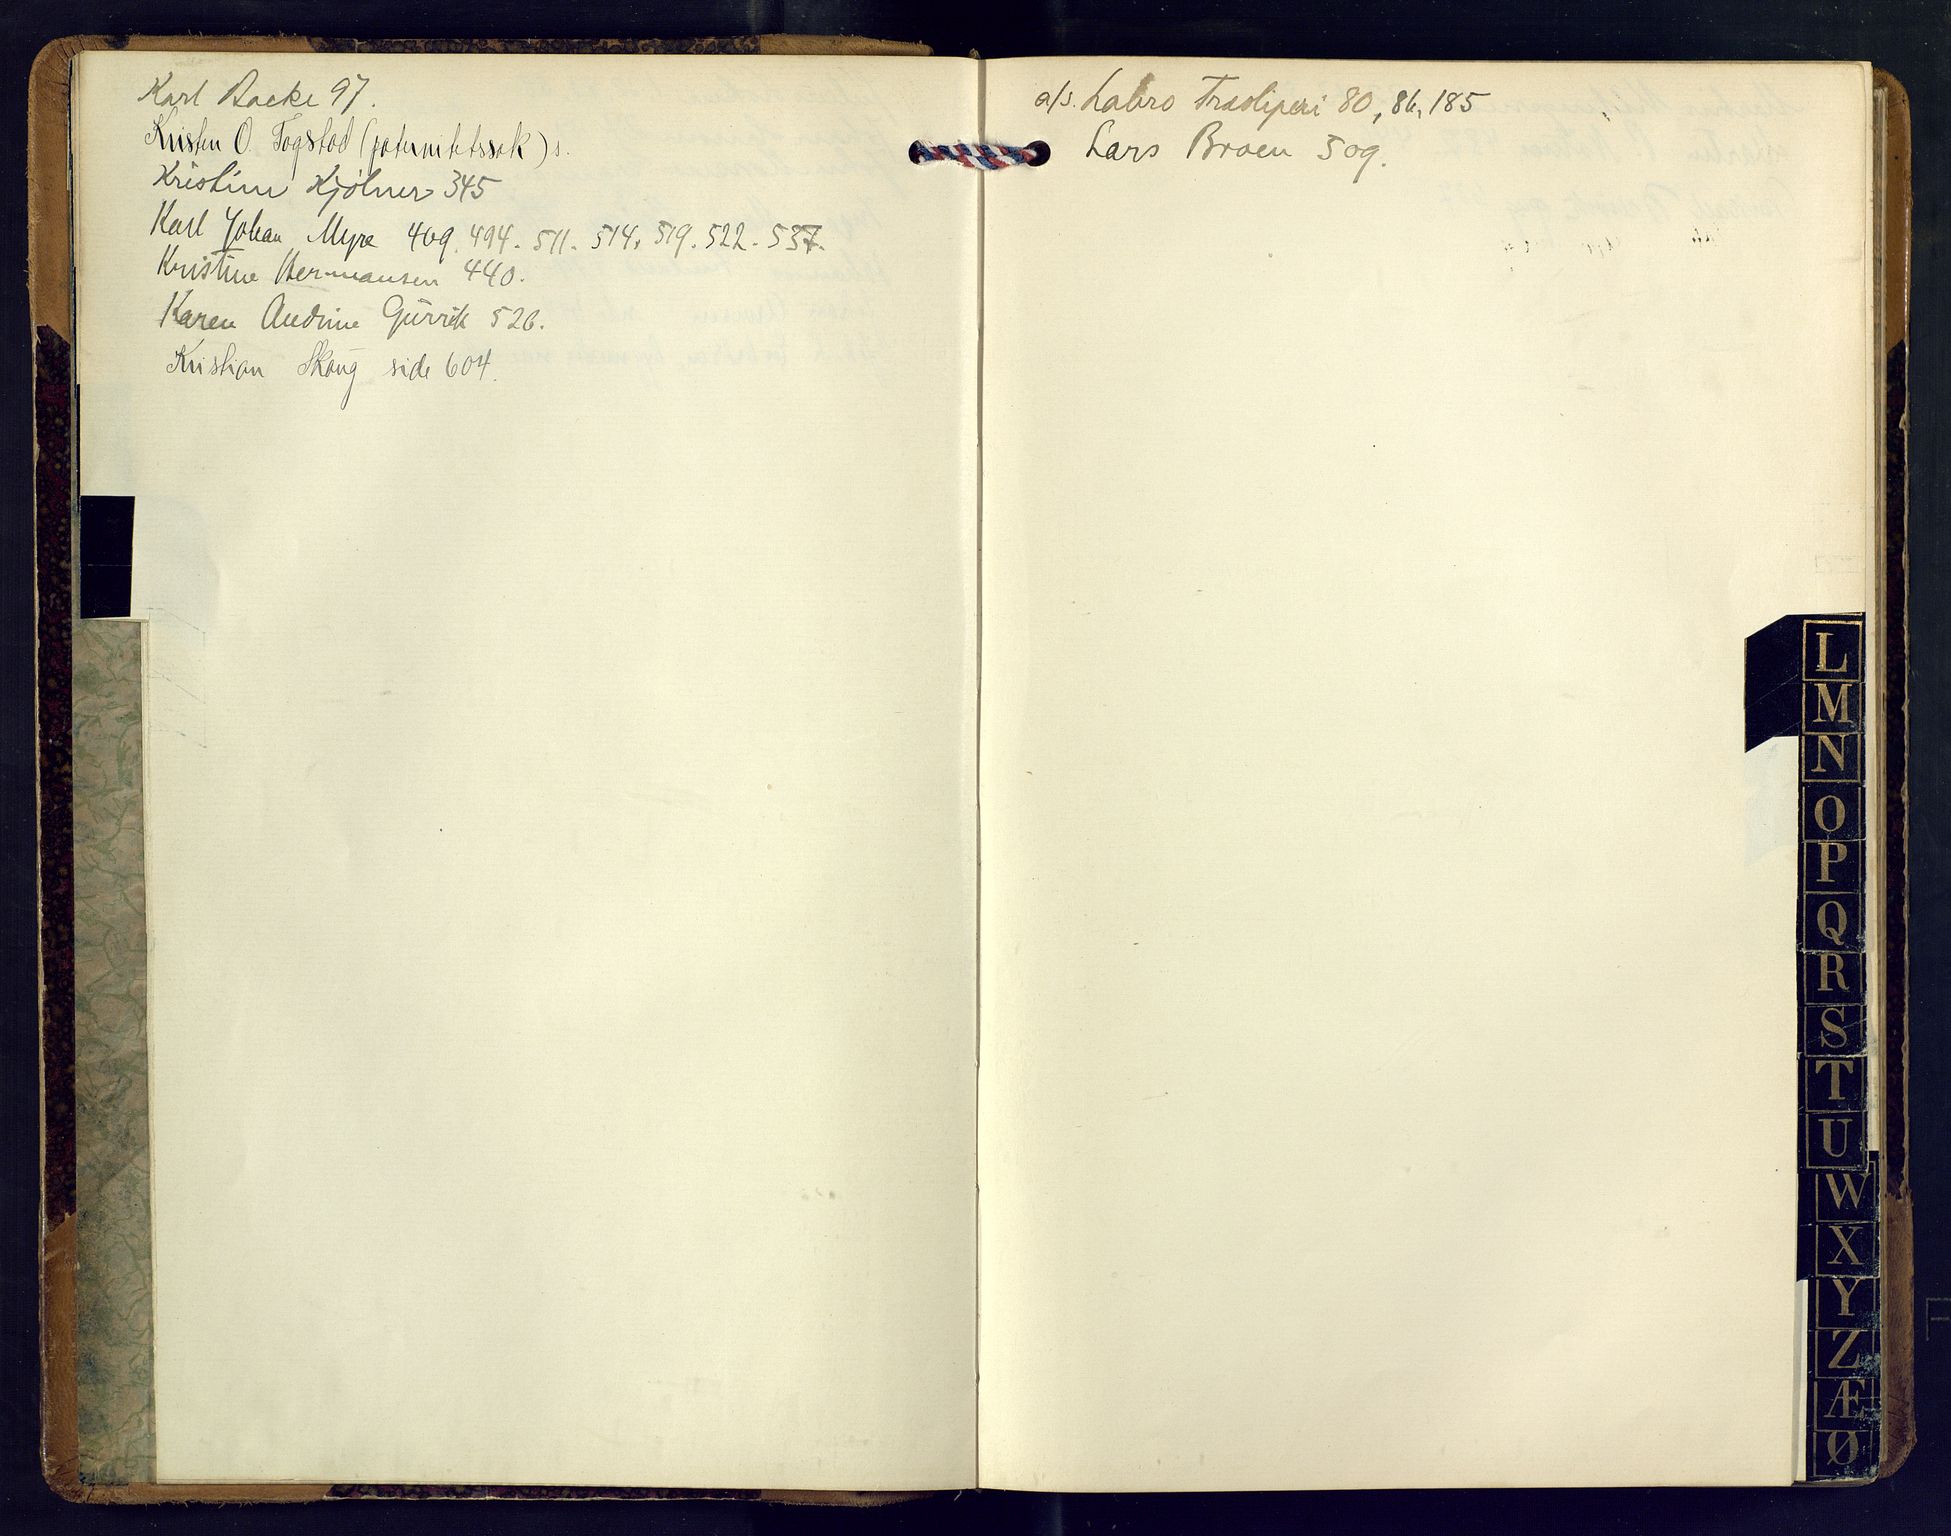 Karl Backe 97.
Kristen O. Fogstad (paternitetssak) s.
Kristine Kjölner 345
Karl Johan Myre 409. 494. 511. 514, 519. 522. 537.
Kristine Hermansen 440.
Karen Andrine Gurrik 526.
Kristian Skaug side 604.
a/s. Labro Træsliperi 80, 86, 185
Lars Braen 509.
L
M
N
O
P
Q
R
S
T
U
W
X
Y
Z
Æ
Ø